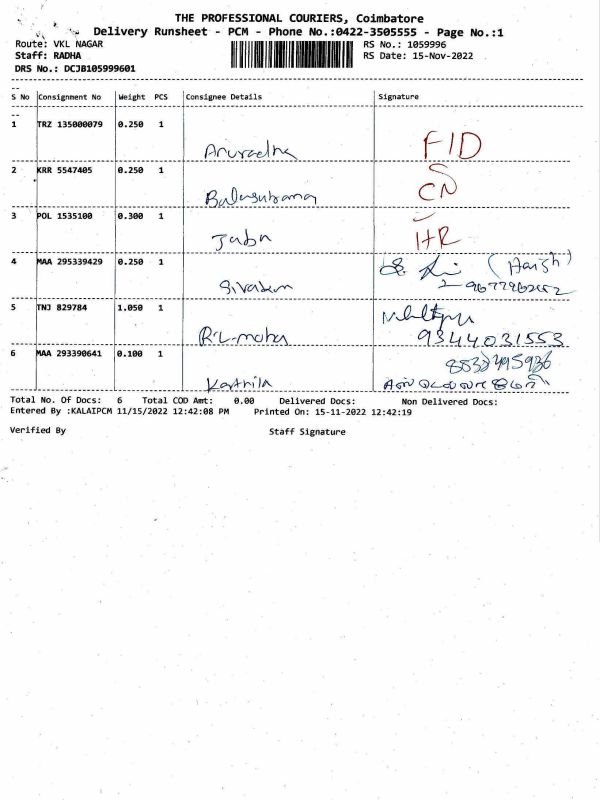 THE PROFESSIONAL COURIERS, Coimbatore
Delivery Runsheet - PCM - Phone No.:0422-3505555 - Page No.:1
Route: VKL NAGAR RS No.: 1059996
Staff: RADHA RS Date: 15-Nov-2022
DRS No.: DCJB105999601
S No Consignment No Weight PCS Consignee Details Signature
1 TRZ 135000079 0.250 1
Anuradha F1D
2 KRR 5547405 0.250 1
CN
3 POL 1535100 0.300 1
HR
4 MAA 295339429 0.250 1
(Harish)
5 TNJ 829784 1.050 1
9344031553
6 MAA 293390641 0.100 1
Total No. Of Docs: 6 Total COD Amt: 0.00 Delivered Docs: Non Delivered Docs:
Entered By :KALAIPCM 11/15/2022 12:42:08 PM Printed On: 15-11-2022 12:42:19
Verified By Staff Signature